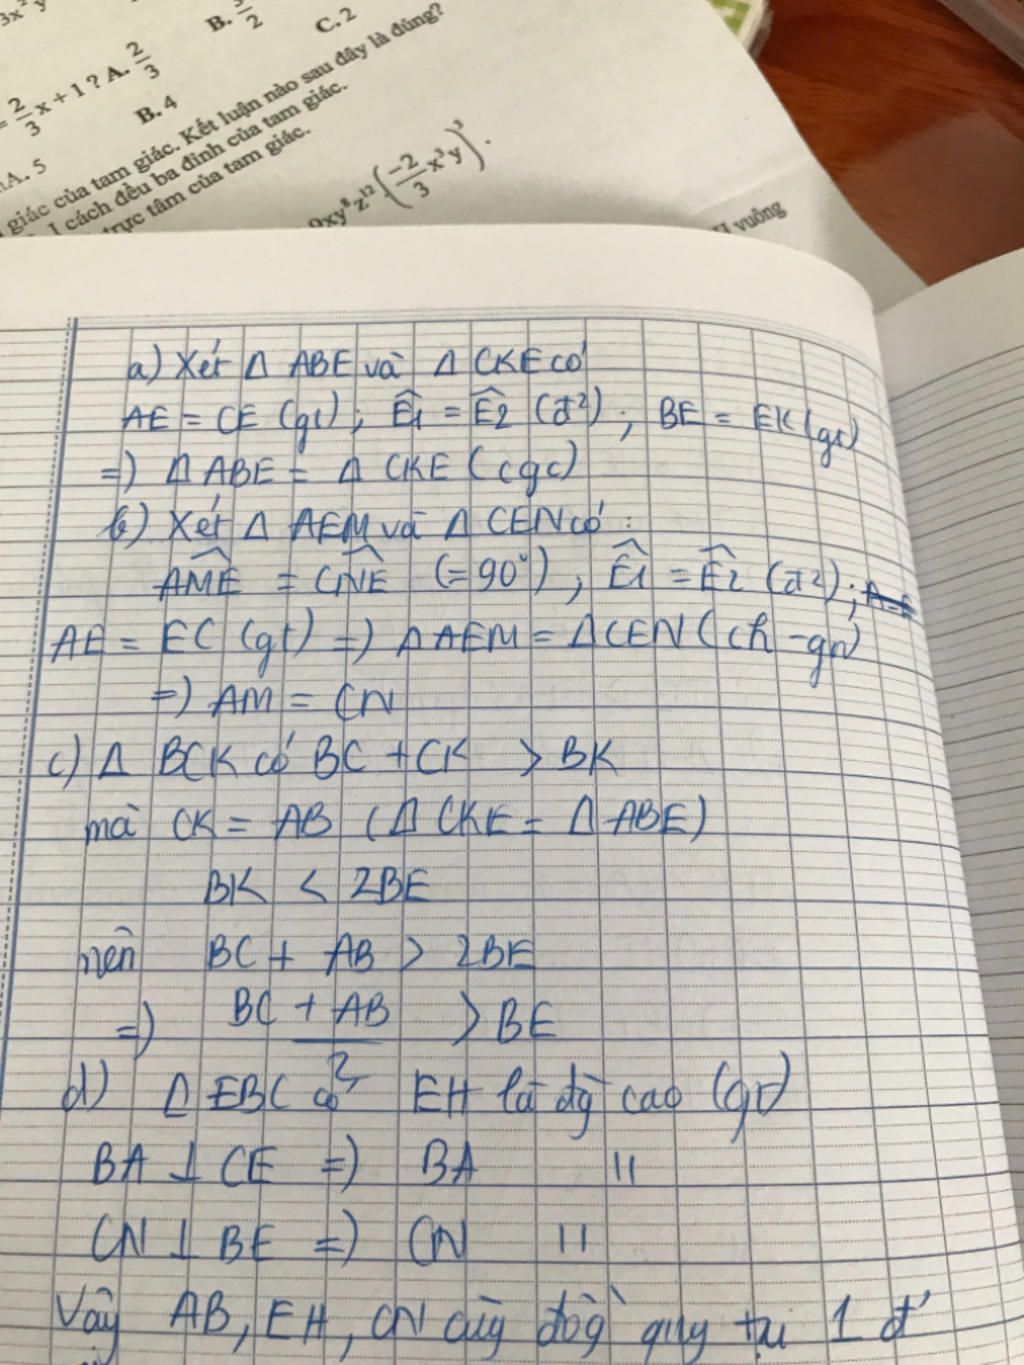 3x²y
B. 3/2
C. 2
= 2/3 x + 1 ? A. 2/3
B. 4
A. 5
giác của tam giác. Kết luận nào sau đây là đúng?
cách đều ba đỉnh của tam giác.
trực tâm của tam giác.
9xy⁸z¹²(-2/3 x³y)³.
vuông
a) Xét Δ ABE và Δ CKE có
AE = CE (gt); Ê1 = Ê2 (đ²); BE = EK (gt)
=) Δ ABE = Δ CKE (cgc)
b) Xét Δ AEM và Δ CEN có:
AME = CNE (= 90°), Ê1 = Ê2 (đ²);
AE = EC (gt) =) Δ AEM = Δ CEN (ch - gn)
=) AM = CN
c) Δ BCK có BC + CK > BK
mà CK = AB (Δ CKE = Δ ABE)
BK < 2BE
nên BC + AB > 2BE
=) BC + AB / 2 > BE
d) Δ EBC có EH là đg cao (gt)
BA ⊥ CE =) BA "
CN ⊥ BE =) CN "
Vậy AB, EH, CN cùg đồg quy tại 1 đ'